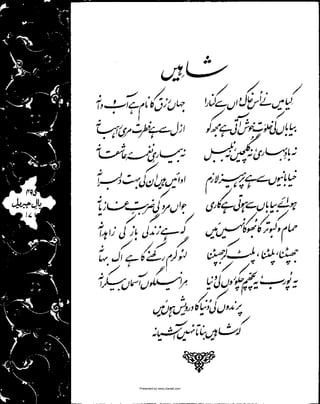 شاہیں
کیا میں نے اُس خاک داں سے کنارا
جہاں رزق کا نام ہے آب و دانہ
بیاباں کی خلوت خوش آتی ہے مجھ کو
ازل سے ہے فطرت مری راہبانہ
نہ بادِ بہاری، نہ گلچیں، نہ بلبل
نہ بیماریِ نغمۂ عاشقانہ
خیابانیوں سے ہے پرہیز لازم
ادائیں ہیں ان کی بہت دلبرانہ
ہوائے بیاباں سے ہوتی ہے کاری
جواں مرد کی ضربتِ غازیانہ
حمام و کبوتر کا بھوکا نہیں میں
کہ ہے زندگی باز کی زاہدانہ
جھپٹنا، پلٹنا، پلٹ کر جھپٹنا
لہو گرم رکھنے کا ہے اک بہانہ
یہ پورب، یہ پچھم چکوروں کی دنیا
مرا نیلگوں آسماں بیکرانہ
پرندوں کی دُنیا کا درویش ہوں میں
کہ شاہیں بناتا نہیں آشیانہ
بالِ جبریل